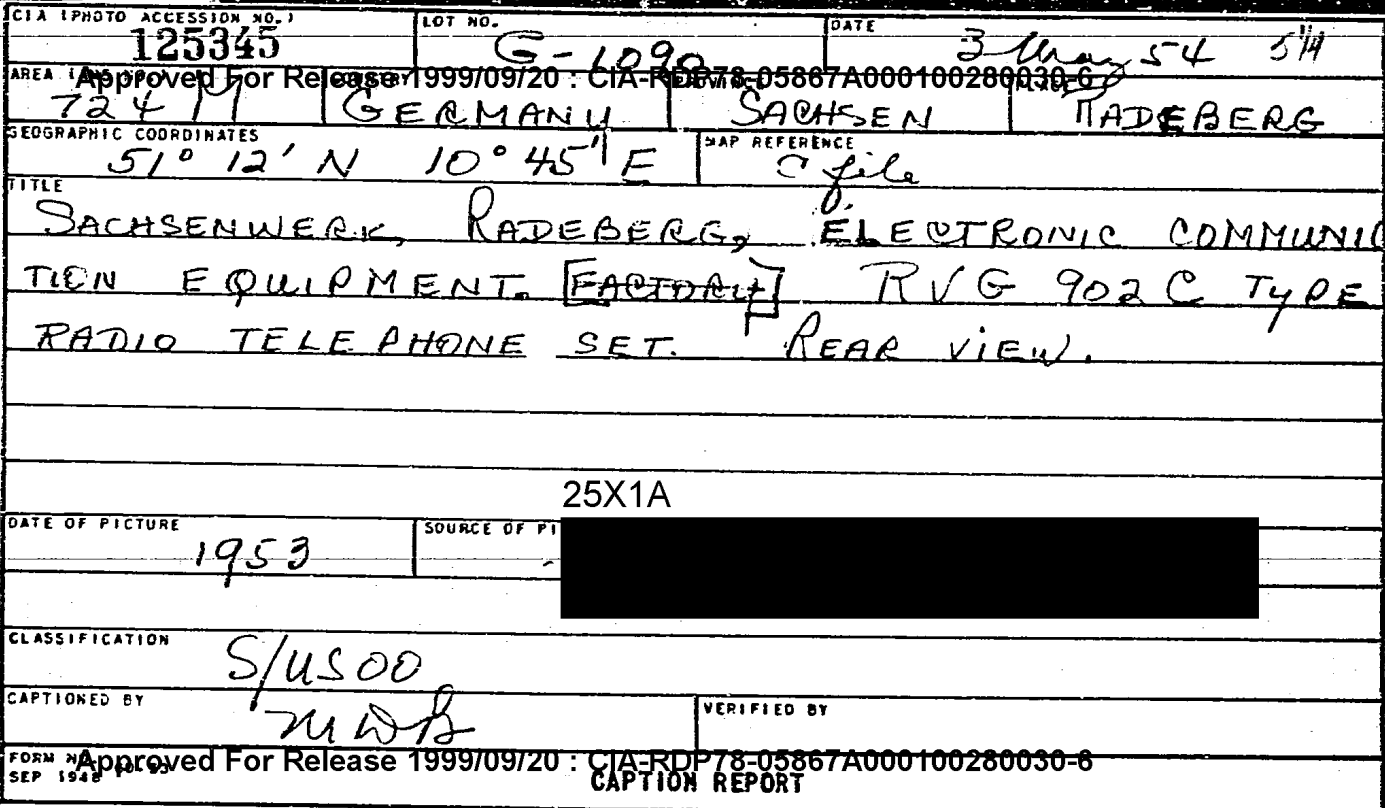 CIA (PHOTO ACCESSION NO.) LOT NO. DATE
125345 G-1090 3 May 54
AREA
Approved For Release 1999/09/20 : CIA-RDP78-05867A000100280030-6
724 GERMANY SACHSEN RADEBERG
GEOGRAPHIC COORDINATES MAP REFERENCE
51° 12' N 10° 45' E C file
TITLE
SACHSENWERK, RADEBERG, ELECTRONIC COMMUNIC
TION EQUIPMENT. [FACTORY] RVG 902 C TYPE
RADIO TELEPHONE SET. REAR VIEW.
25X1A
DATE OF PICTURE SOURCE OF PI
1953
CLASSIFICATION
S/USOO
CAPTIONED BY VERIFIED BY
MWB
FORM
Approved For Release 1999/09/20 : CIA-RDP78-05867A000100280030-6
SEP 1948 CAPTION REPORT